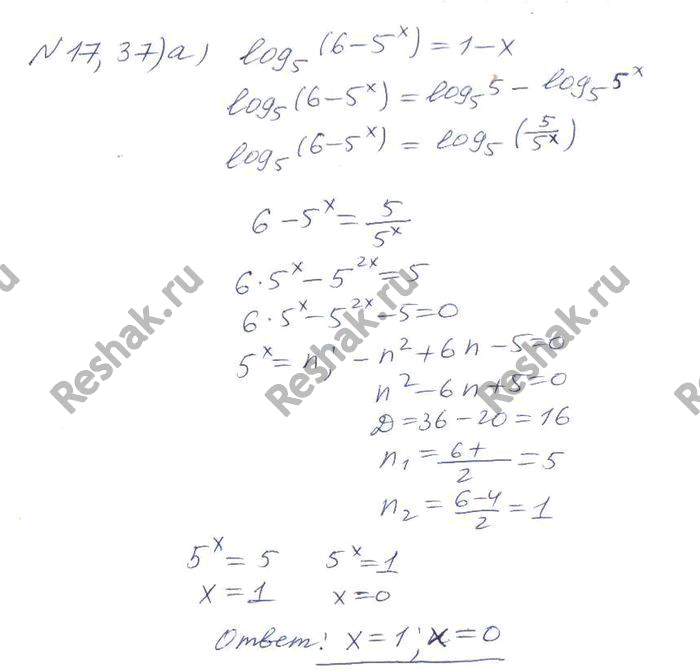 N 17, 37) а) log₅ (6 – 5ˣ) = 1 – x
log₅ (6 – 5ˣ) = log₅ 5 – log₅ 5ˣ
log₅ (6 – 5ˣ) = log₅ (5/5ˣ)
6 – 5ˣ = 5/5ˣ
6 · 5ˣ – 5²ˣ = 5
6 · 5ˣ – 5²ˣ – 5 = 0
5ˣ = n; – n² + 6n – 5 = 0
n² – 6n + 5 = 0
D = 36 – 20 = 16
n₁ = (6+)/2 = 5
n₂ = (6–4)/2 = 1
5ˣ = 5 5ˣ = 1
x = 1 x = 0
Ответ: x = 1; x = 0
Reshak.ru
Reshak.ru
Reshak.ru